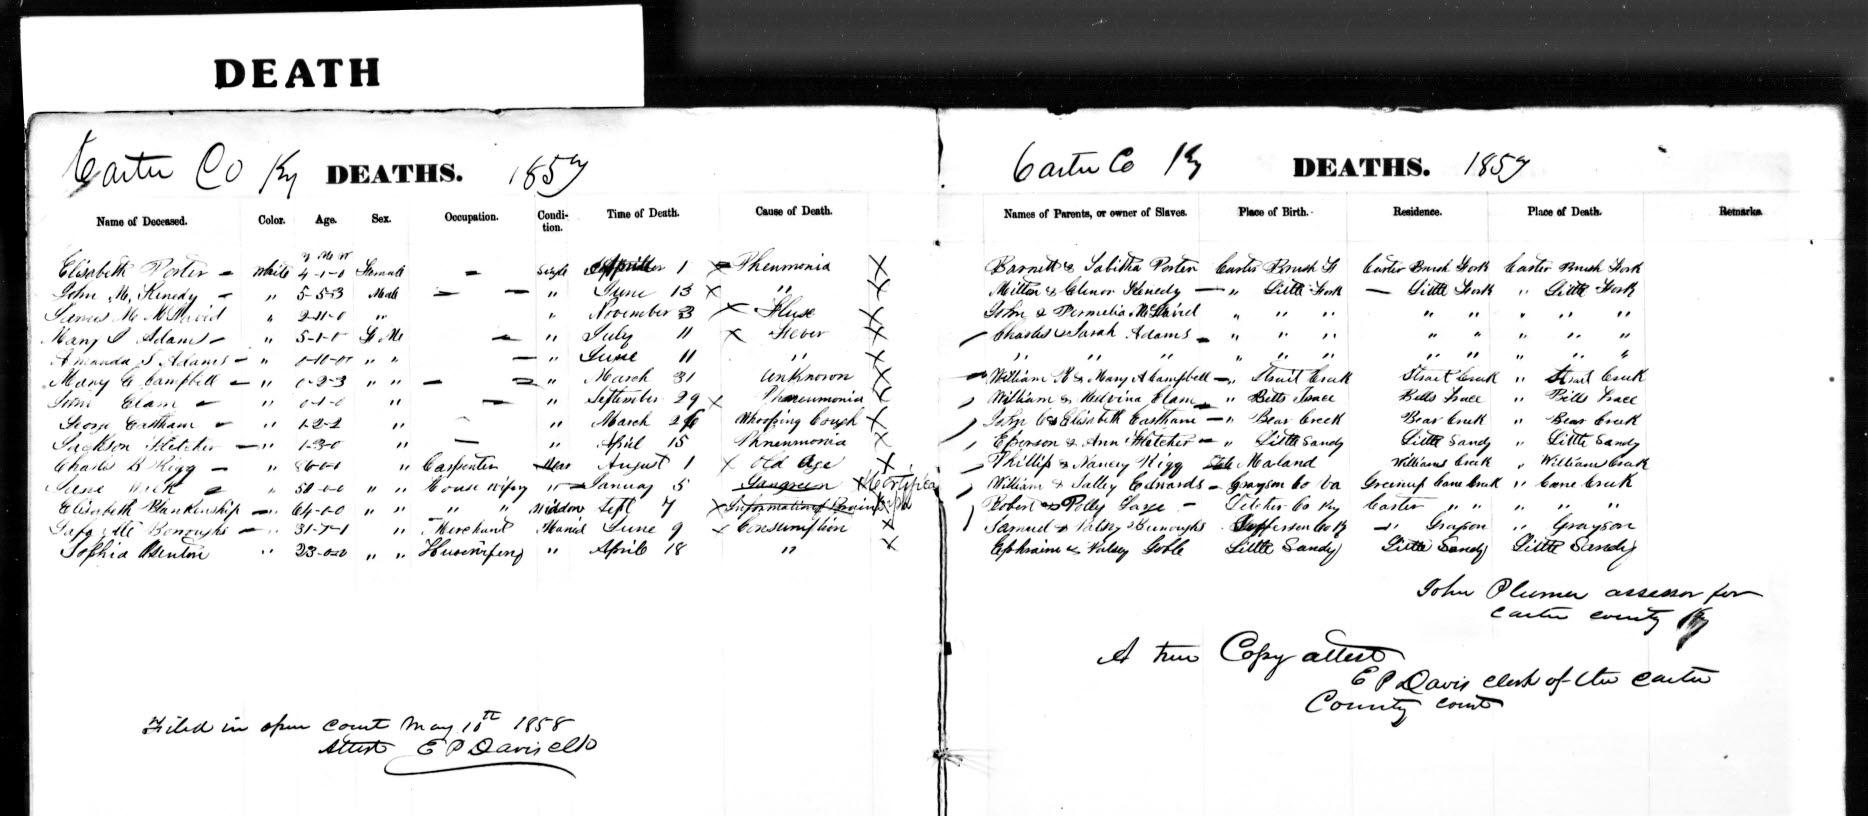 DEATH
Carter Co Ky DEATHS. 1857
Name of Deceased. Color. Age. Sex. Occupation. Condition. Time of Death. Cause of Death.
y m w
Elisabeth Porter - White 4-1-0 Female - Single 1 Pheumonia
John M. Kenedy - " 5-5-3 Male - - " June 13 "
James M. McDavid " 2-11-0 " " November 3 Fluse
Mary S Adams - " 5-1-0 - " July 11 Fever
Amanda S Adams - " " " - " June 11 "
Mary E Campbell - " 0-2-3 " " - " March 31 Unknown
John Elam - " 0-1-0 " - " September 29 Pheumonia
George Eastham - " 1-2-2 " " March 26 Whooping Cough
Jackson Fletcher - " 1-3-0 " - " April 15 Phneumonia
Charles B Rigg - " " Carpenter August 1 Old Age
Jane " 50-0-0 " " House wifery " January 5 Gangreen
Elisabeth Blankinship - " 64-1-0 " " " " Widdow Sept 7
Burroughs - " 31-7-1 " Merchant Maried June 9 Consumption
Sophia " 23-0-0 " " " April 18 "
Filed in open court May 10th 1858
Attest E P Davis clk
Carter Co Ky DEATHS. 1857
Names of Parents, or owner of Slaves. Place of Birth. Residence. Place of Death. Remarks.
Barnett & Tabitha Porter Carter Brush F Carter Brush Fork Carter Brush Fork
Milton & Elenor Kenedy - " Little Fork - Little Fork " Little Fork
John & Permelia McDavid " " " " " " " "
Charles & Sarah Adams - " " " " " " " "
" " " " " " " " " " "
William K & Mary A Campbell - " Strait Creek Strait Creek " Strait Creek
William & Malvina Elam - " Bells Trace Bells Trace " Bells Trace
John C & Elisabeth Eastham - " Bear Creek Bear Creek " Bear Creek
Eperson & Ann Fletcher - " Little Sandy Little Sandy " Little Sandy
Phillip & Nancy Rigg Maland Williams Creek " William Creek
William & Salley Edwards - Grayson Co Va Greenup Cane Creek " Cane Creek
Robert & Polly - Co Ky Carter " " " " "
Samuel & Burroughs Jefferson Co Grayson " Grayson
Ephraim & Goble Little Sandy Little Sandy Little Sandy
John Plumer assessor for
Carter county Ky
A true Copy attest
E P Davis clerk of the Carter
County court